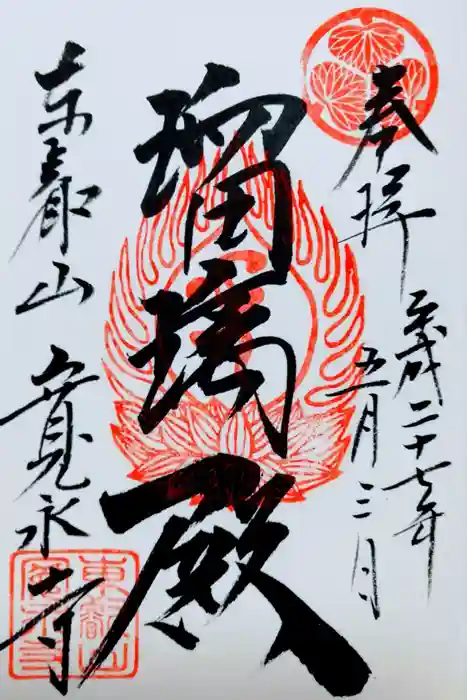 奉拝
平成二十七年
五月三日
瑠璃殿
東叡山 寛永寺